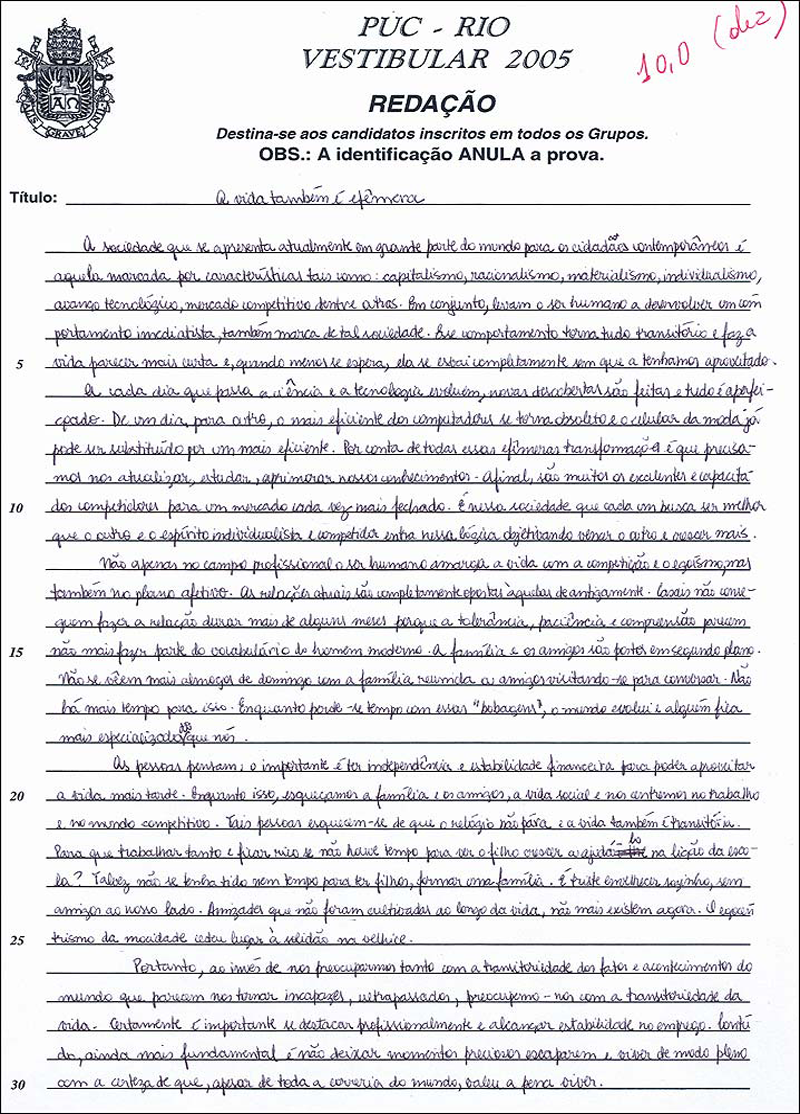 PUC - RIO
VESTIBULAR 2005
10,0 (dez)
REDAÇÃO
Destina-se aos candidatos inscritos em todos os Grupos.
OBS.: A identificação ANULA a prova.
Título: A vida também é efêmera
A sociedade que se apresenta atualmente em grande parte do mundo para os cidadãos contemporâneos é
aquela marcada por características tais como: capitalismo, racionalismo, materialismo, individualismo,
avanço tecnológico, mercado competitivo dentre outras. Em conjunto, levam o ser humano a desenvolver um com
portamento imediatista, também marca de tal sociedade. Esse comportamento torna tudo transitório e faz a
5 vida parecer mais curta e, quando menos se espera, ela se esvai completamente sem que a tenhamos aproveitado.
A cada dia que passa a ciência e a tecnologia evoluem, novas descobertas são feitas e tudo é aperfei-
çoado. De um dia para outro, o mais eficiente dos computadores se torna obsoleto e o celular da moda já
pode ser substituído por um mais eficiente. Por conta de todas essas efêmeras transformações é que precisa-
mos nos atualizar, estudar, aprimorar nossos conhecimentos. Afinal, são muitos os excelentes e capacita-
10 dos competidores para um mercado cada vez mais fechado. É nessa sociedade que cada um busca ser melhor
que o outro e o espírito individualista e competidor entra nessa lógica objetivando vencer o outro e crescer mais.
Não apenas no campo profissional o ser humano amarga a vida com a competição e o egoísmo, mas
também no plano afetivo. As relações atuais são completamente opostas àquelas de antigamente. Casais não conse-
guem fazer a relação durar mais de alguns meses porque a tolerância, paciência e compreensão parecem
15 não mais fazer parte do vocabulário do homem moderno. A família e os amigos são postos em segundo plano.
Não se vêem mais almoços de domingo com a família reunida ou amigos visitando-se para conversar. Não
há mais tempo para isso. Enquanto perde-se tempo com essas "bobagens", o mundo evolui e alguém fica
mais especializado do que nós.
As pessoas pensam: o importante é ter independência e estabilidade financeira para poder aproveitar
20 a vida mais tarde. Enquanto isso, esqueçamos a família e os amigos, a vida social e nos centremos no trabalho
e no mundo competitivo. Tais pessoas esquecem-se de que o relógio não pára e a vida também é transitória.
Para que trabalhar tanto e ficar rico se não houve tempo para ver o filho crescer ou ajudá-lo na lição da esco-
la? Talvez não se tenha tido nem tempo para ter filhos, formar uma família. É triste envelhecer sozinho, sem
amigos ao nosso lado. Amizades que não foram cultivadas ao longo da vida, não mais existem agora. O egocen-
25 trismo da mocidade cedeu lugar à solidão na velhice.
Portanto, ao invés de nos preocuparmos tanto com a transitoriedade dos fatos e acontecimentos do
mundo que parecem nos tornar incapazes, ultrapassados, preocupemo-nos com a transitoriedade da
vida. Certamente é importante se destacar profissionalmente e alcançar estabilidade no emprego. Contu-
do, ainda mais fundamental é não deixar momentos preciosos escaparem e viver de modo pleno
30 com a certeza de que, apesar de toda a correria do mundo, valeu a pena viver.